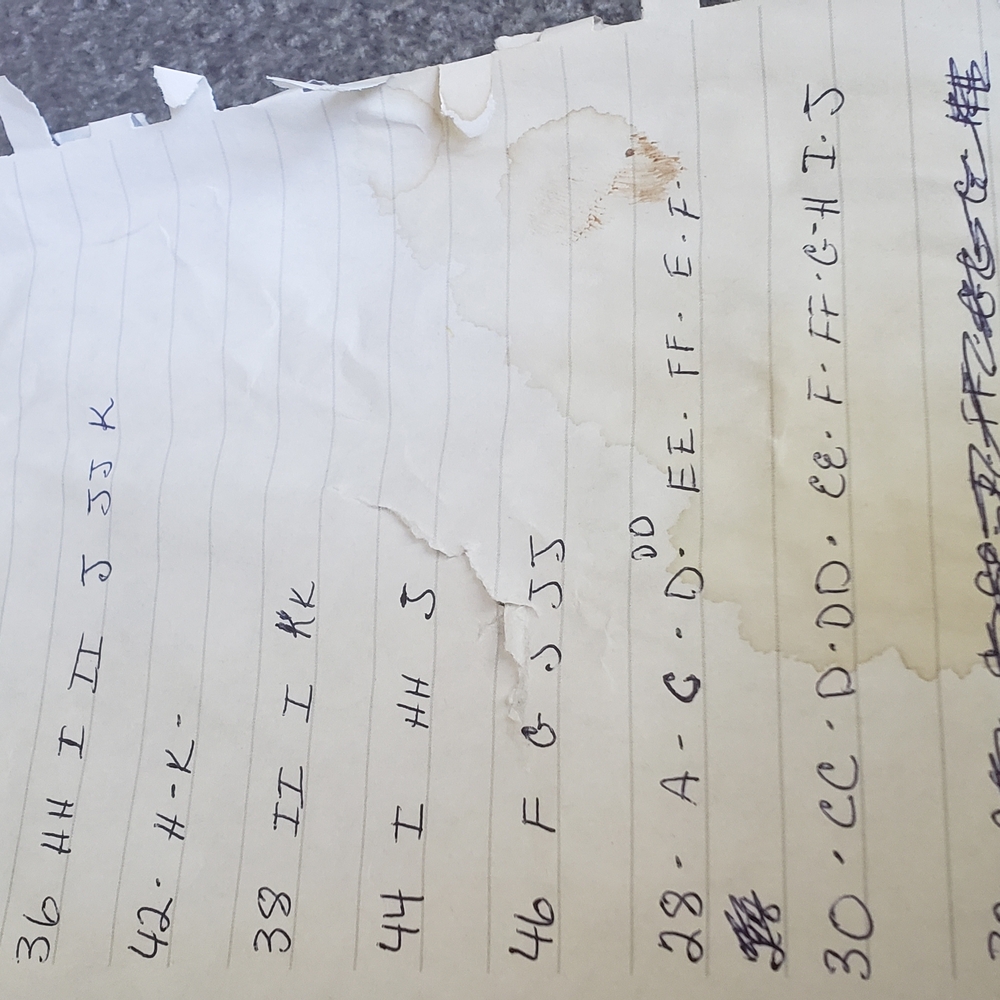 36 HH I II J JJ K
42. H-K-
38 II I KK
44 I HH J
46 F G J JJ
DD
28. A - C . D. EE. FF. E. F.
30. CC . D. DD. EE. F. FF. G-H I. J